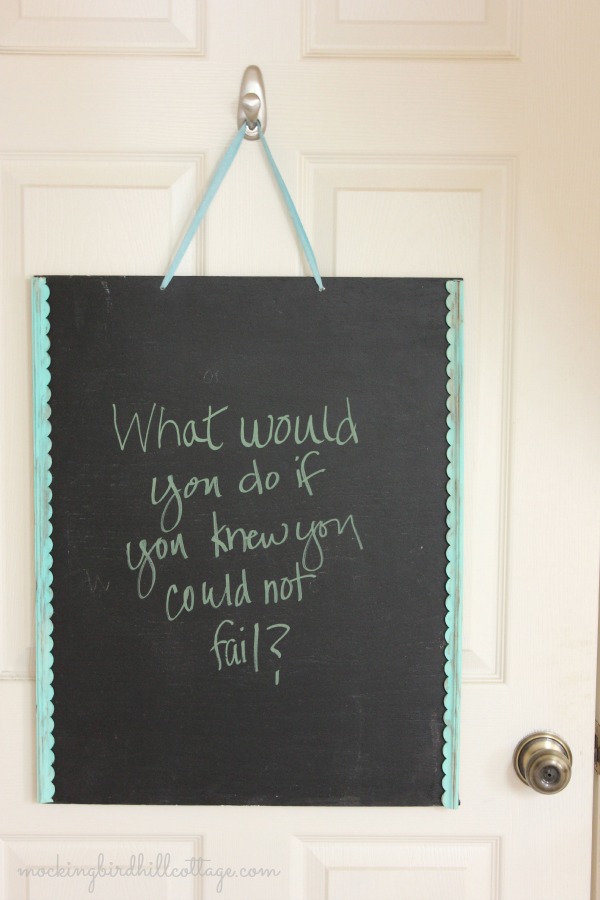 What would
you do if
you knew you
could not
fail?
mockingbirdhillcottage.com